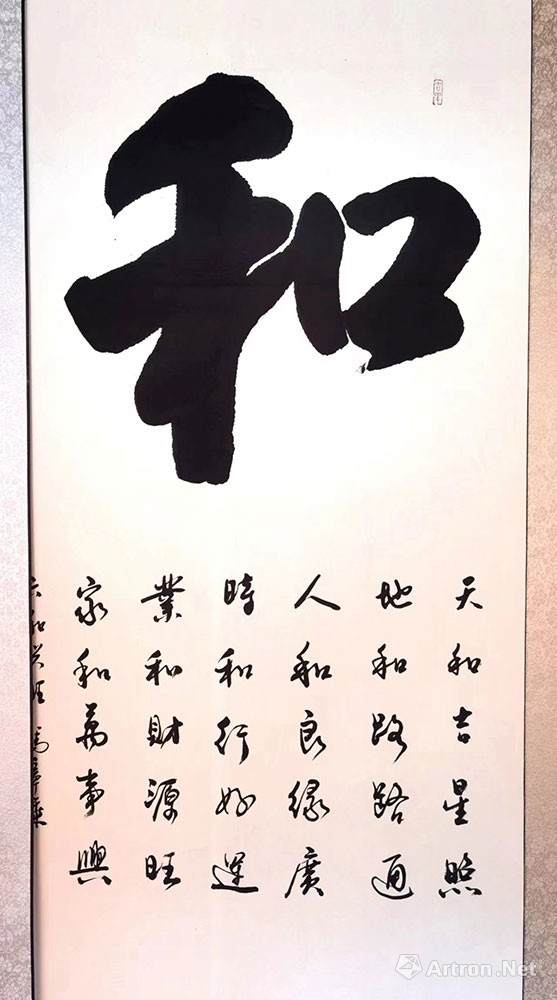 和
天和吉星照
地和路路通
人和良缘廣
時和行好運
業和財源旺
家和萬事興
六和兴旺
Artron.Net